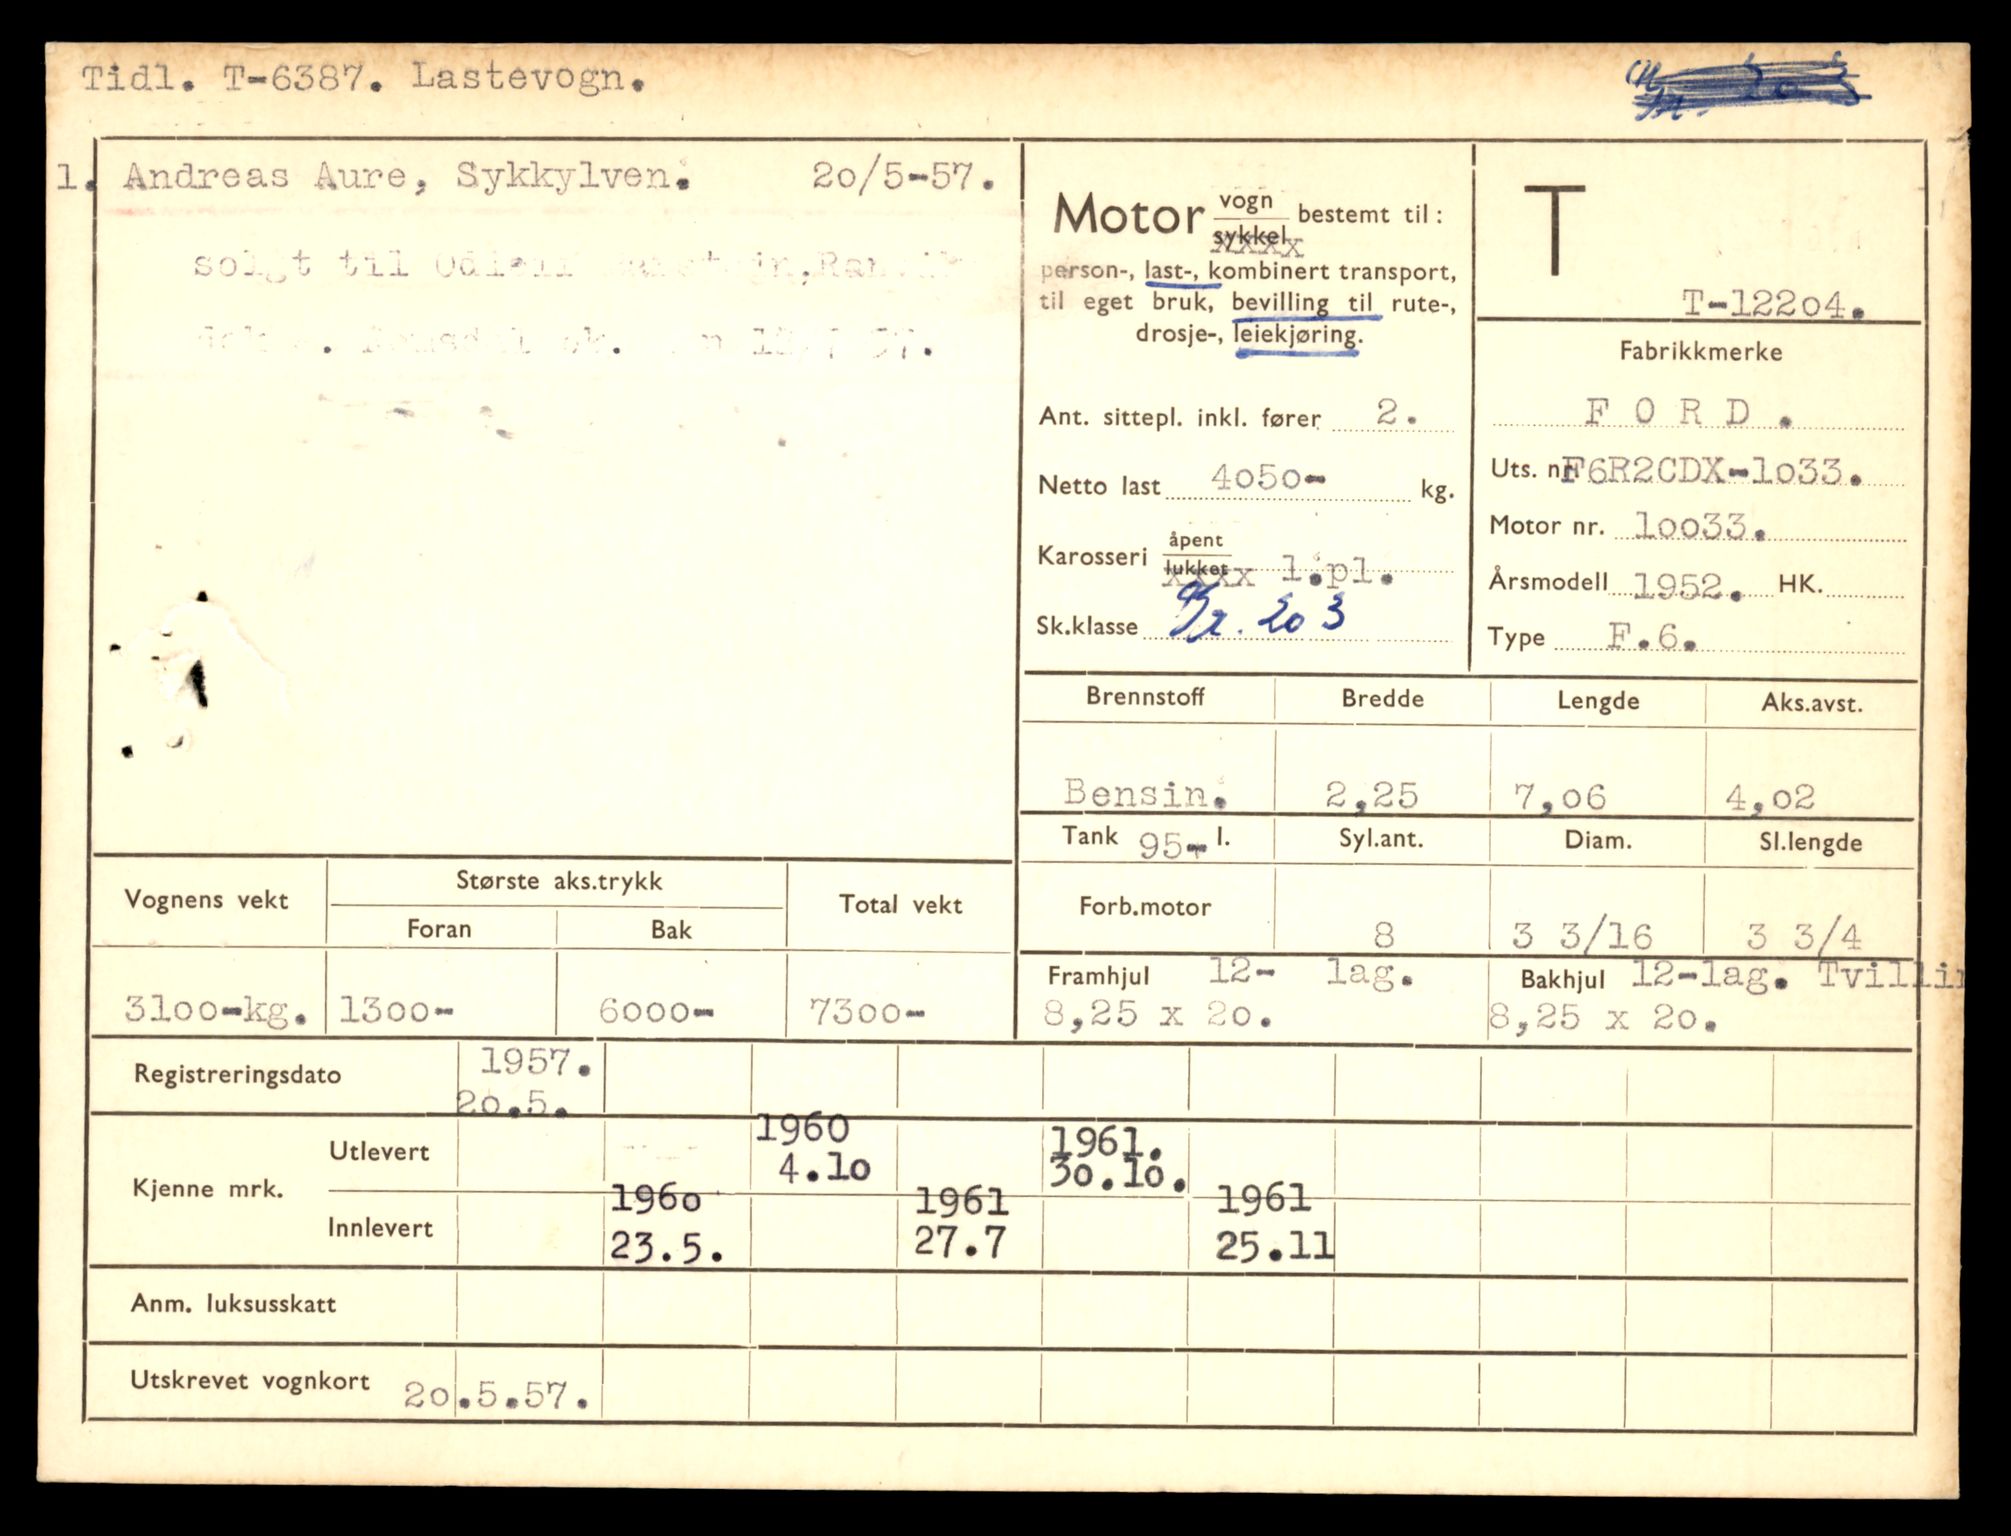 Tidl. T-6387. Lastevogn.
1. Andreas Aure, Sykkylven. 20/5-57.
solgt til
Motor vogn / sykkel bestemt til:
xxxx
person-, last-, kombinert transport,
til eget bruk, bevilling til rute-,
drosje-, leiekjøring.
Ant. sittepl. inkl. fører 2.
Netto last 4050- kg.
Karosseri åpent / lukket 1.pl.
xxxx
Sk.klasse 203
T
T-12204.
Fabrikkmerke
F O R D .
Uts. nr F6R2CDX-1033.
Motor nr. 10033.
Årsmodell 1952. HK.
Type F.6.
Brennstoff Bredde Lengde Aks.avst.
Bensin. 2,25 7,06 4,02
Tank 95- l. Syl.ant. Diam. Sl.lengde
Forb.motor 8 3 3/16 3 3/4
Framhjul 12- lag. Bakhjul 12-lag. Tvillin
8,25 x 20. 8,25 x 20.
Vognens vekt Største aks.trykk Total vekt
Foran Bak
3100-kg. 1300- 6000- 7300-
Registreringsdato 1957.
20.5.
Kjenne mrk.
Utlevert 1960 1961.
4.10 30.10.
Innlevert 1960 1961 1961
23.5. 27.7 25.11
Anm. luksusskatt
Utskrevet vognkort 20.5.57.